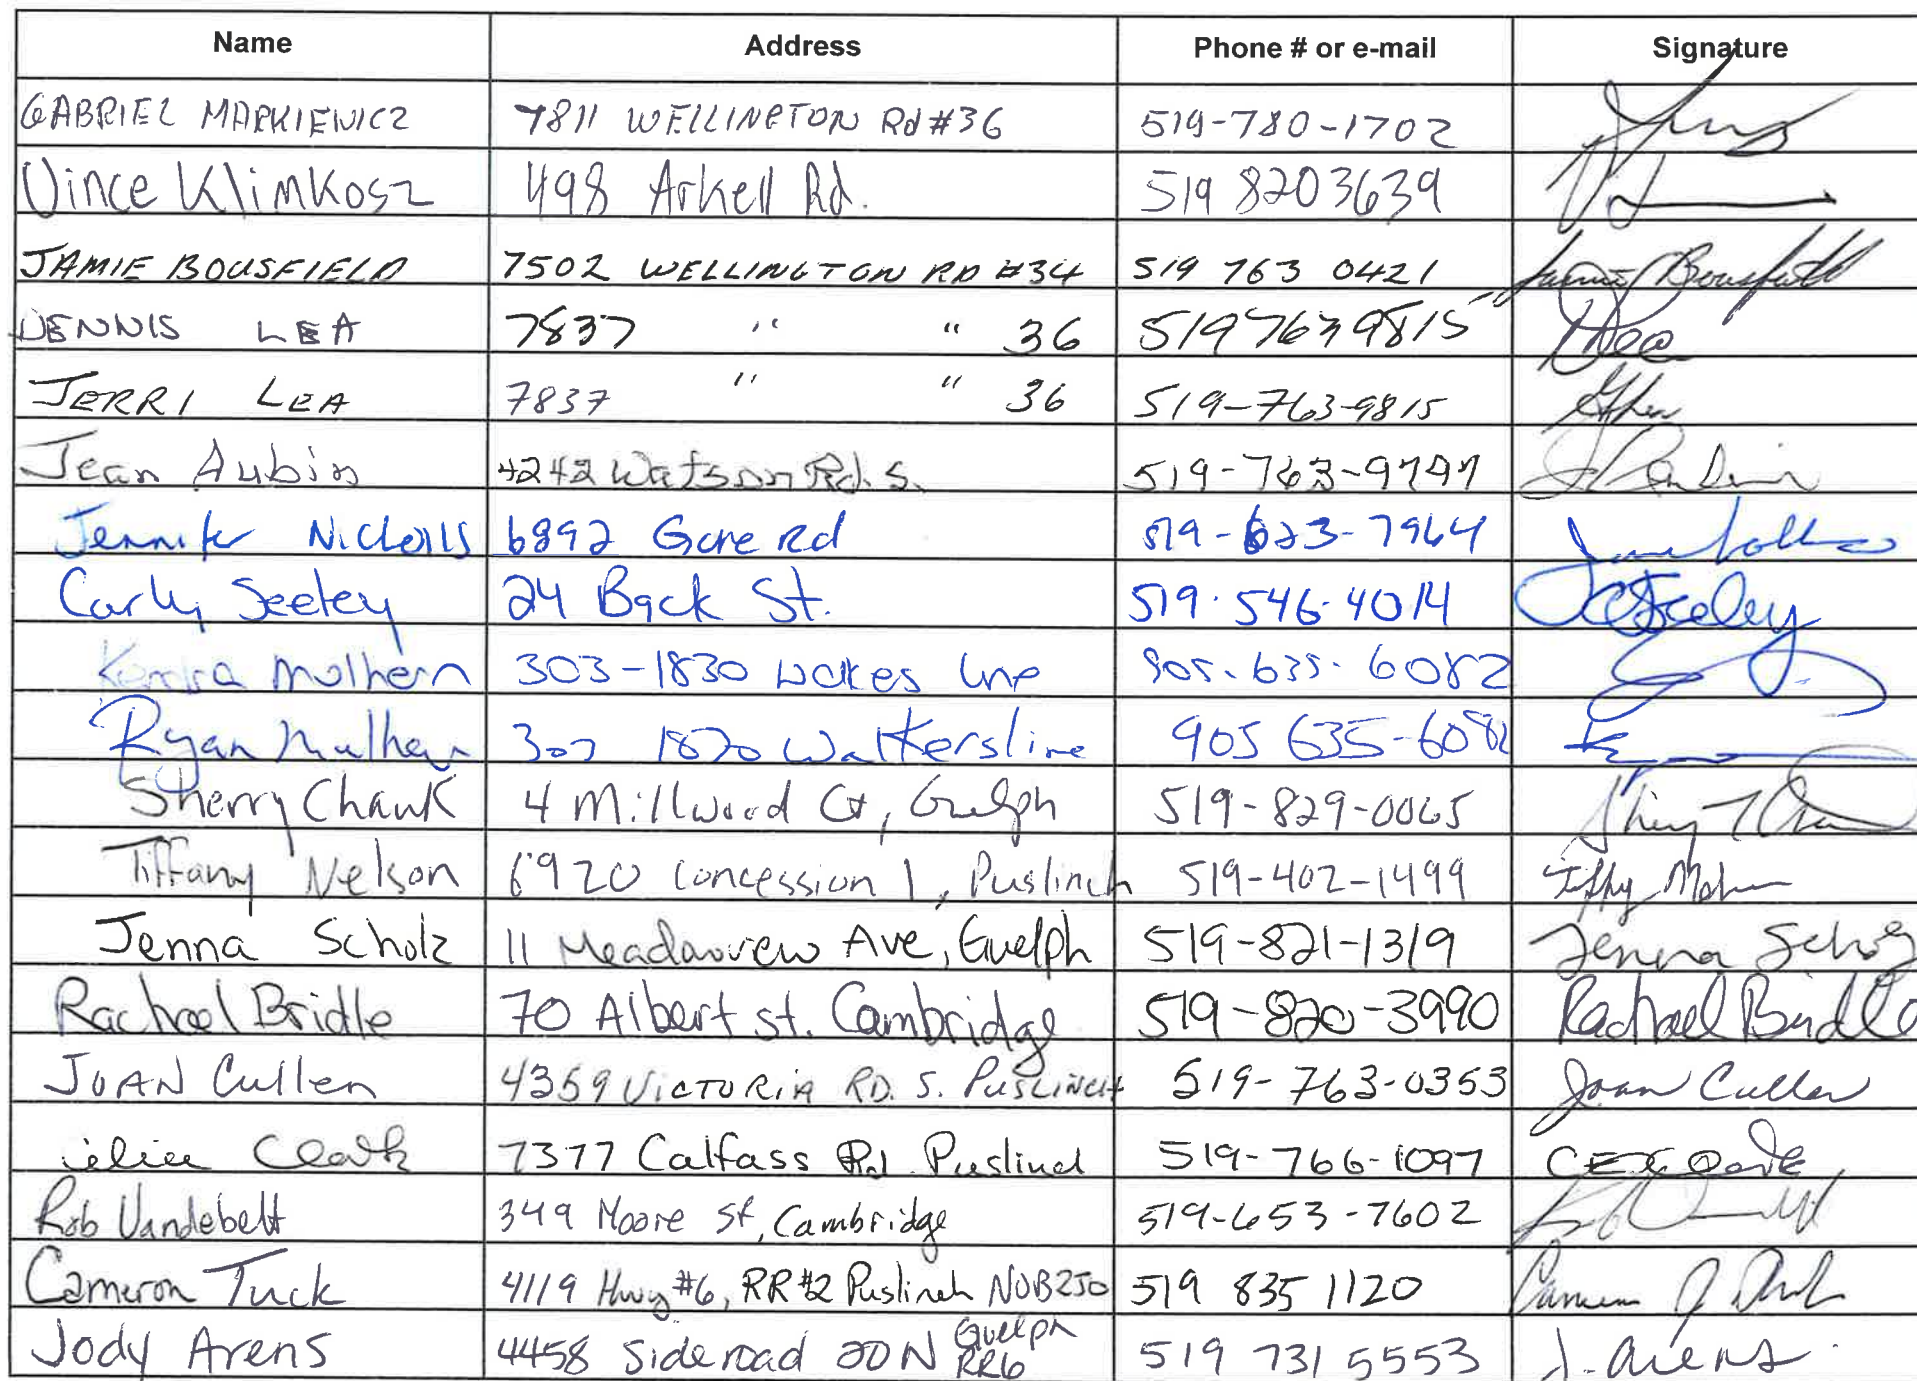 Name Address Phone # or e-mail Signature
GABRIEL MARKIEWICZ 7811 WELLINGTON Rd #36 519-780-1702
Vince Klimkosz 498 Arkell Rd. 519 8203639
JAMIE BOUSFIELD 7502 WELLINGTON RD #34 519 763 0421 Jamie Bousfield
DENNIS LEA 7837 " " 36 519 763 9815 DLea
JERRI LEA 7837 " " 36 519-763-9815
Jean Aubin 4242 Watson Rd. S. 519-763-9797
Jennifer Nicholls 6892 Gore Rd 519-623-7964
Carly Seeley 24 Back St. 519-546-4014 CSeeley
Mulhern 303-1830 Walkers Line 905-635-6082
Ryan Mulhern 303 1830 Walkersline 905 635-6082
Sherry Chauk 4 Millwood Ct, Guelph 519-829-0065
Tiffany Nelson 6920 Concession 1, Puslinch 519-402-1499
Jenna Scholz 11 Meadowview Ave, Guelph 519-821-1319 Jenna Scholz
Rachael Bridle 70 Albert st. Cambridge 519-820-3990 Rachael Bridle
JOAN Cullen 4359 VICTORIA RD. S. PUSLINCH 519-763-0353 Joan Cullen
Clark 7377 Calfass Rd Puslinch 519-766-1097
Rob Vandebelt 349 Moore St, Cambridge 519-653-7602
Cameron Tuck 4119 Hwy #6, RR #2 Puslinch N0B2J0 519 835 1120
Jody Arens 4458 Sideroad 20 N Guelph RR6 519 731 5553 J. Arens